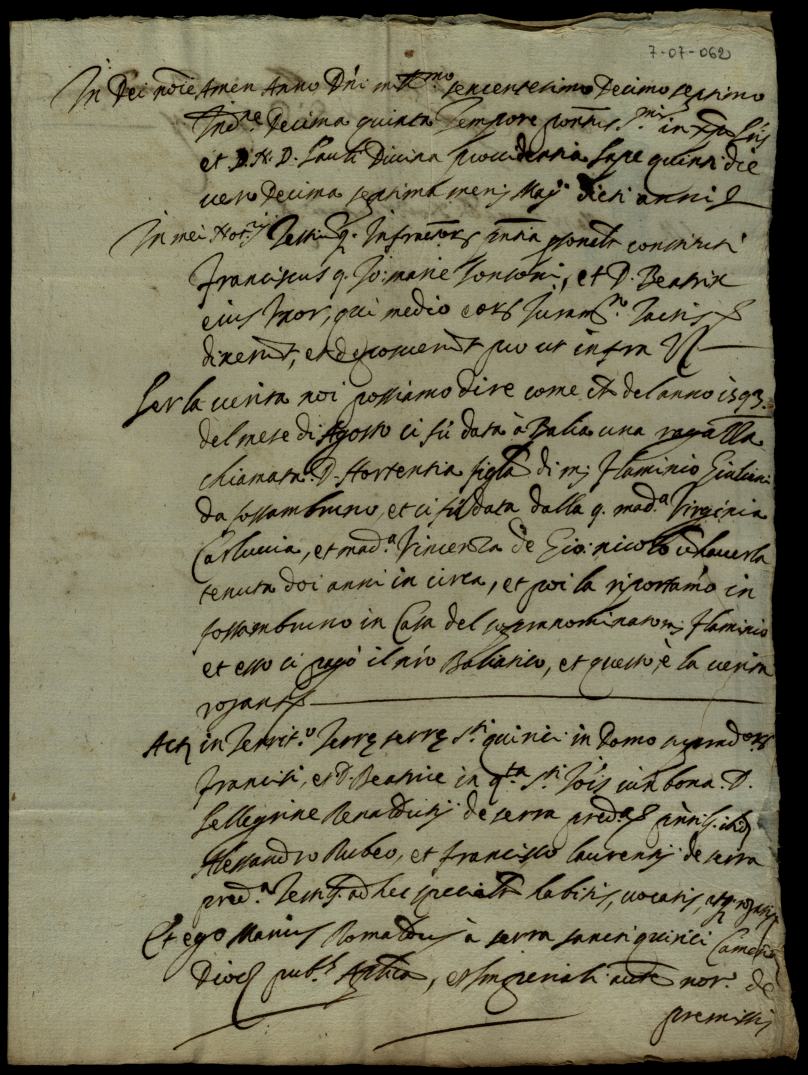 7-07-062
In Dei noie Amen Anno Dni mill.mo sexcentesimo Decimo septimo
Ind.ne Decima quinta Tempore pontus. S.mi in xpo Pris
et D. N. D. Pauli Divina providentia Pape quinti die
vero Decima septima mens Maij dicti anni
In mei Not.ij Testiu q. Infractorum pntia psonalr constituti
Franciscus q. Jo: marie, et D. Beatrix
eius Uxor, qui medio eorum Juram.to Tactis
dixerut, et deposuerut put ut infra
Per la verita noi possiamo dire come del anno 1593.
del mese di Agosto ci fù data à Balia una ragazza
chiamata D. Hortentia figla di m. Flaminio Giuliani
da fossambruno, et ci fù data dalla q. mad.a Virginia
Carluccia, et mad.a Vincenza de Gio: nicolo haverla
tenuta doi anni in circa, et poi la riportamo in
fossambruno in Casa del sopranominato m. Flaminio
et esso ci pagò il nro Baliatico, et questo è la verita
rogantes
Act in Territ.o Terrę serrę S.ti quirici in domo suprad.orum
Francisci, et D. Beatrice in q.ta S.ti Jois iux bona D.
Pellegrine de serra pred.a pntib. ibid
Alessandro Rubeo, et francisco laurentij de serra
pred.a Testib. ad hec specialr habitis, vocatis, atq rogatis
Et ego Marius à serra sancti quirici Camerin
Dioc pub.s Aplica, et Imperiali aucte not. de
premissis